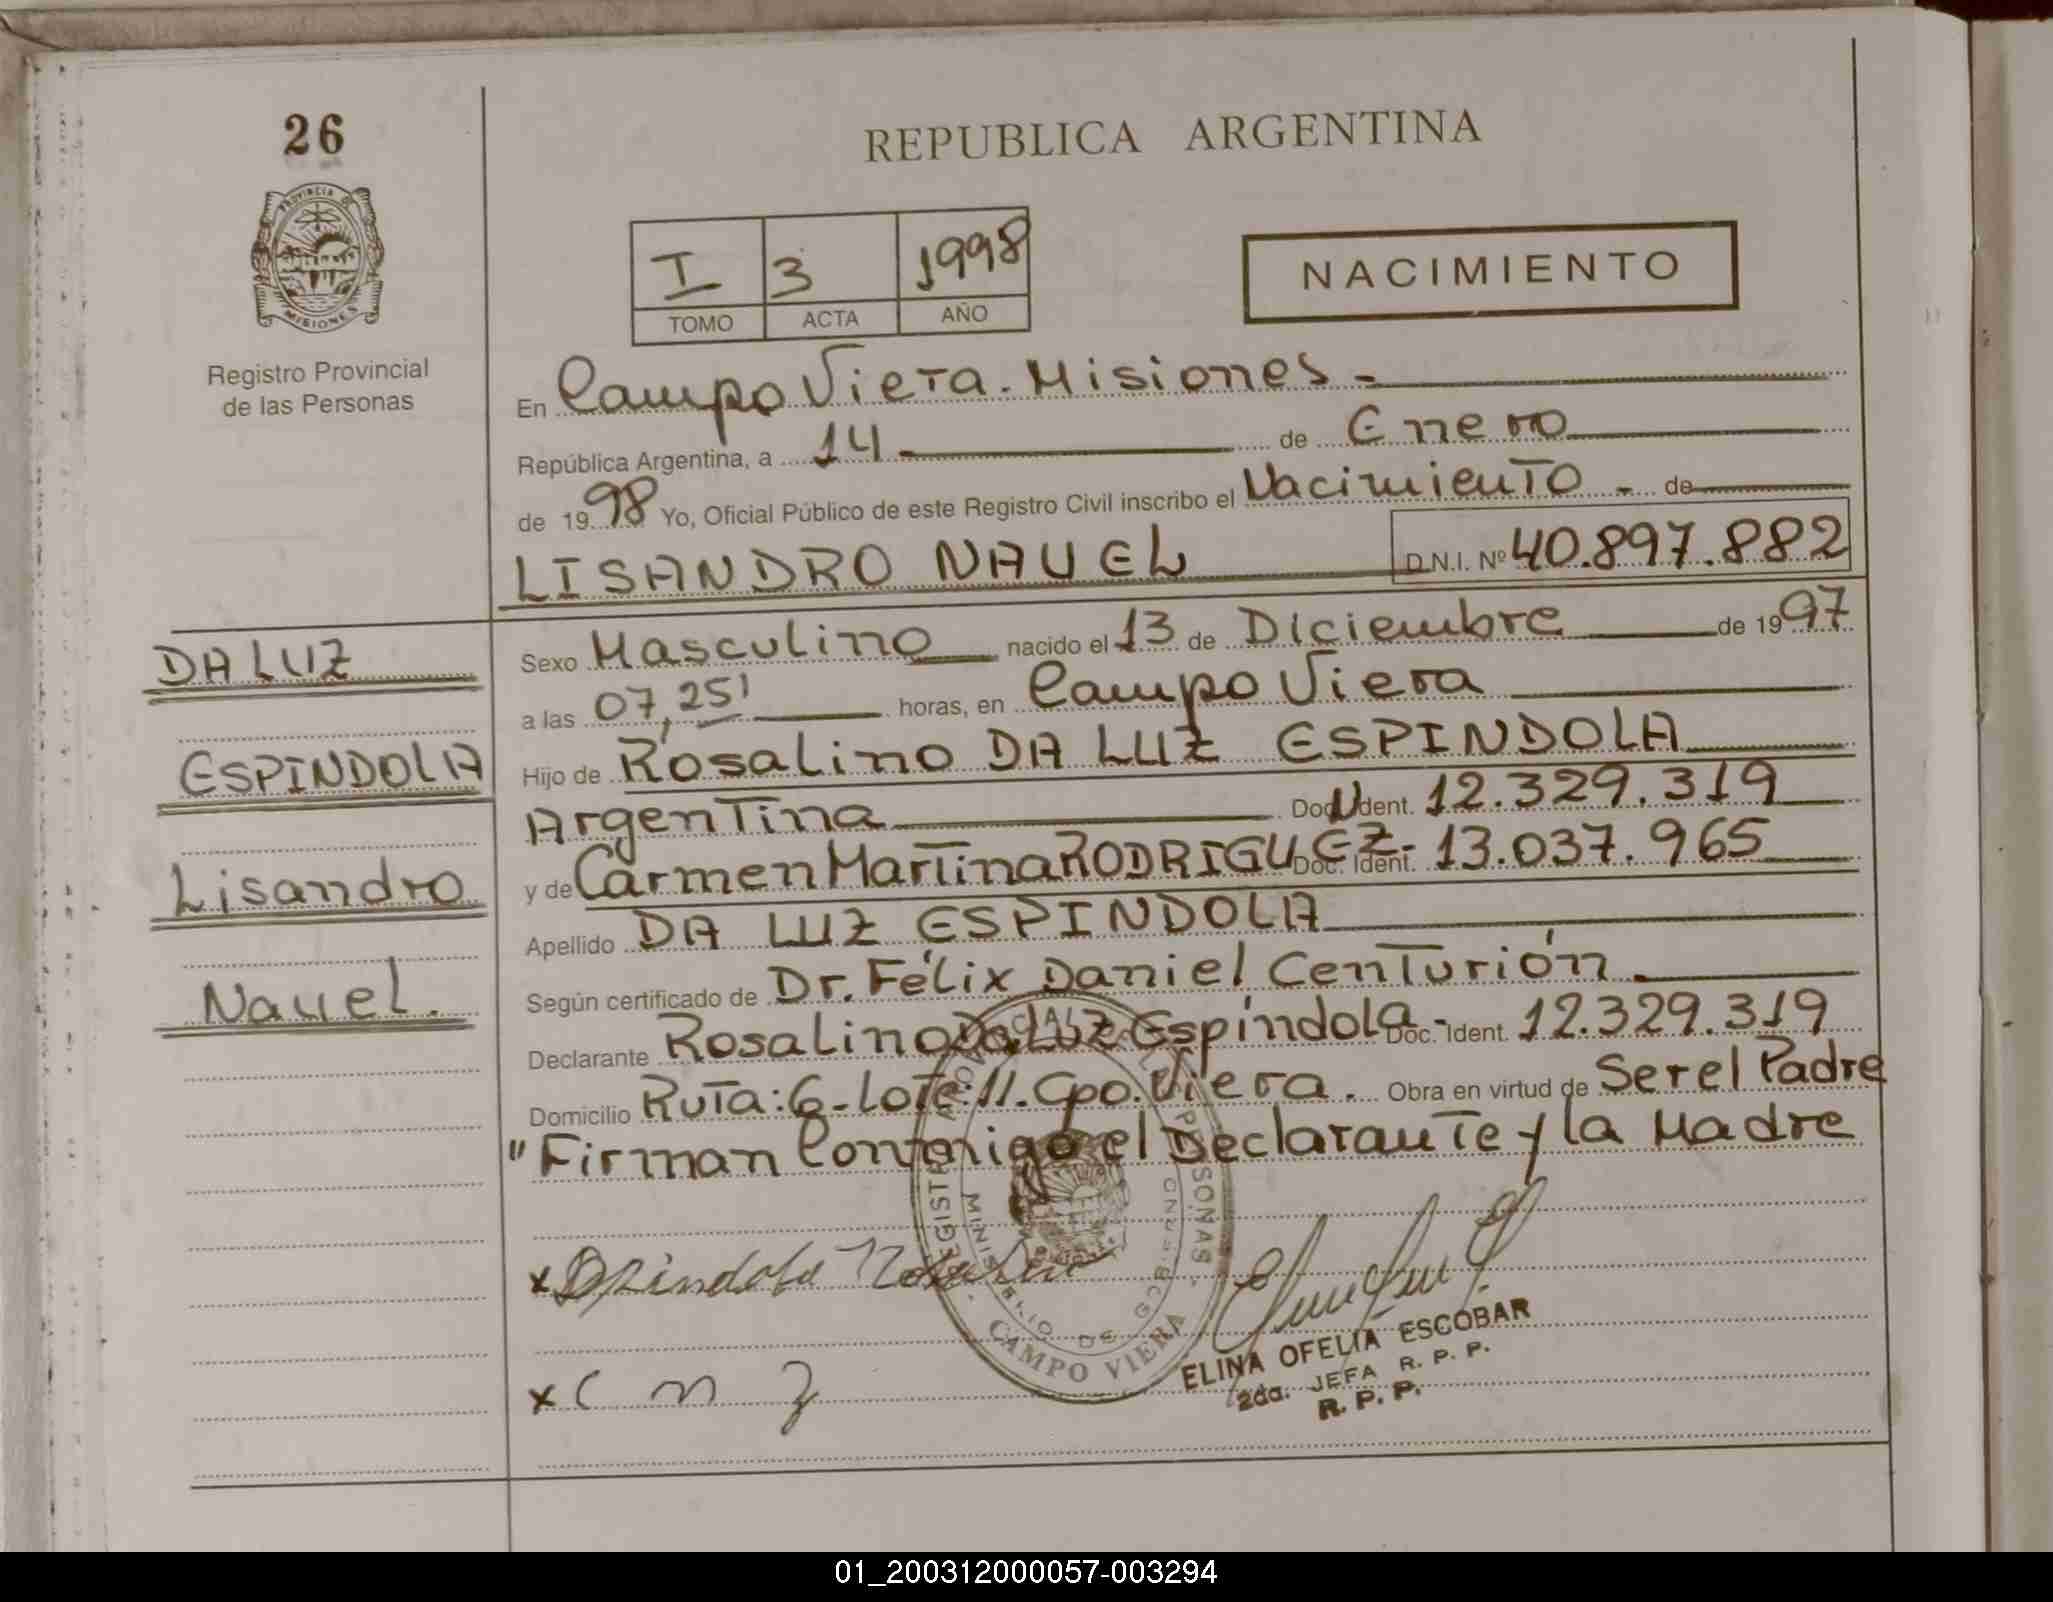 26
PROVINCIA DE
MISIONES
Registro Provincial
de las Personas
REPUBLICA ARGENTINA
I 3 1998
TOMO ACTA AÑO
NACIMIENTO
En Campo Viera. Misiones -
República Argentina, a 14 de Enero
de 1998 Yo, Oficial Público de este Registro Civil inscribo el Nacimiento - de
LISANDRO NAUEL D.N.I. Nº 40.897.882
DA LUZ
ESPINDOLA
Lisandro
Nauel.
Sexo Masculino nacido el 13 de Diciembre de 1997
a las 07,25' horas, en Campo Viera
Hijo de Rosalino DA LUZ ESPINDOLA
Argentina Doc. Ident. 12.329.319
y de Carmen Martina RODRIGUEZ- Doc. Ident. 13.037.965
Apellido DA LUZ ESPINDOLA
Según certificado de Dr. Félix Daniel Centurión
Declarante Rosalino Da Luz Espíndola- Doc. Ident. 12.329.319
Domicilio Ruta: 6-Lote:11. Cpo. Viera. Obra en virtud de Ser el Padre
"Firman Conmigo el Declarante y la Madre
x Espindola Rosalino
x C m z
CAMPO VIERA
ELINA OFELIA ESCOBAR
2da. JEFA R. P. P.
R. P. P.
01_200312000057-003294